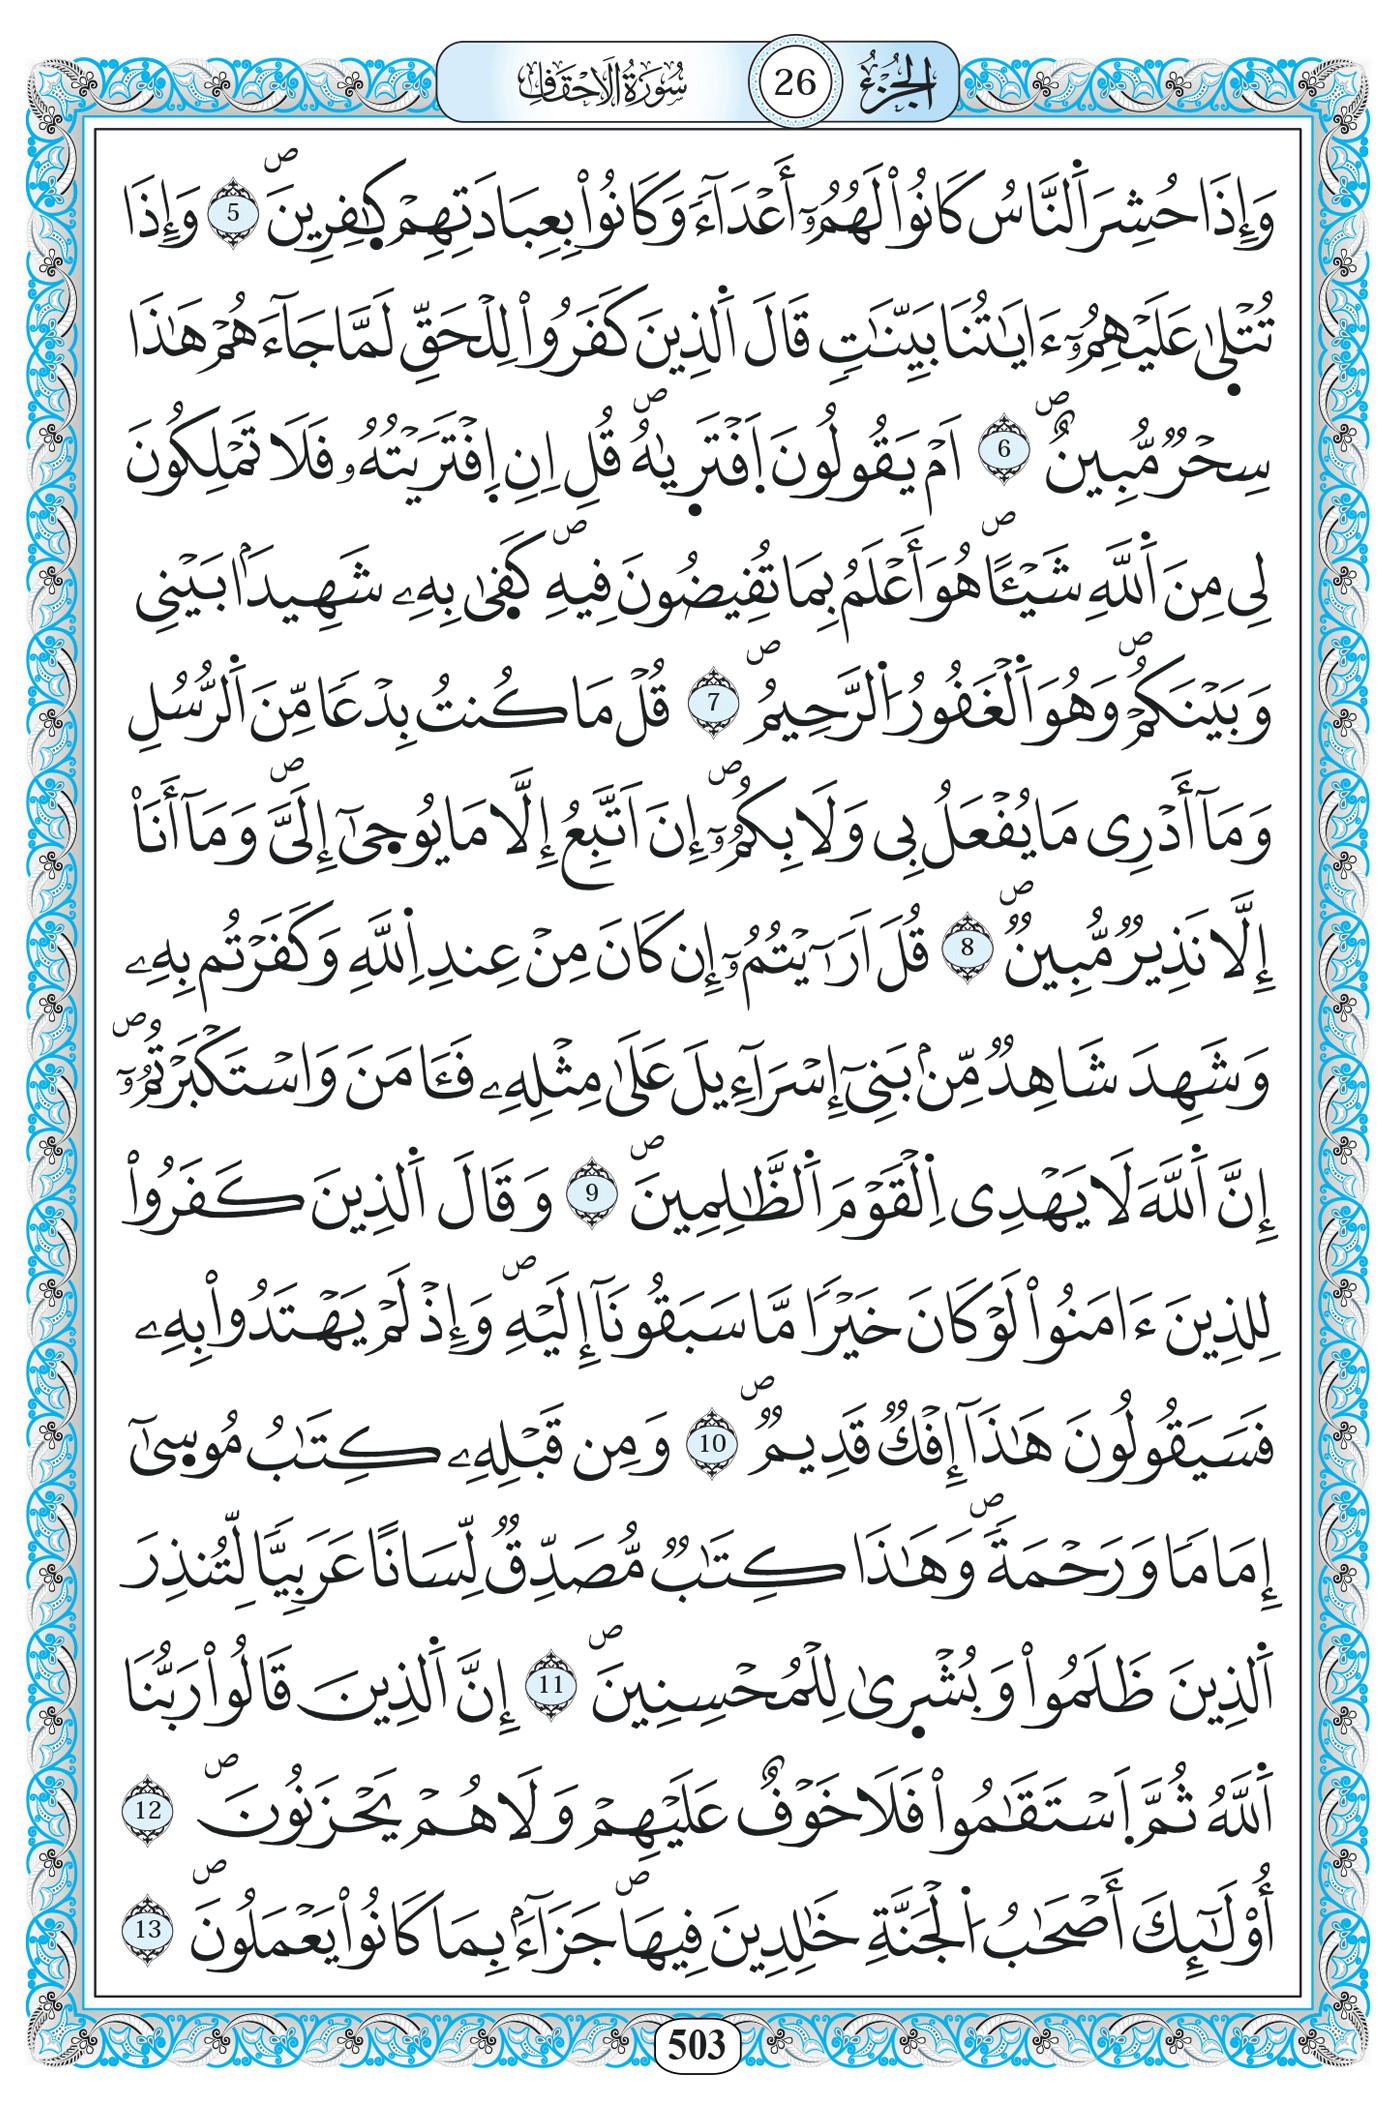 الجزء 26 سورة الاحقاف
وَإِذَا حُشِرَ اَ۬لنَّاسُ كَانُواْ لَهُمُۥٓ أَعْدَآءٗ وَكَانُواْ بِعِبَادَتِهِمْ كٰ۪فِرِينَۖ 5 وَإِذَا
تُتْل۪يٰ عَلَيْهِمُۥٓ ءَايَٰتُنَا بَيِّنَٰتٖ قَالَ اَ۬لذِينَ كَفَرُواْ لِلْحَقِّ لَمَّا جَآءَهُمْ هَٰذَا
سِحْرٞ مُّبِينٌۖ 6 اَمْ يَقُولُونَ اَ۪فْتَر۪يٰهُۖ قُلِ اِنِ اِ۪فْتَرَيْتُهُۥ فَلَا تَمْلِكُونَ
لِي مِنَ اَ۬للَّهِ شَيْـًٔاۖ هُوَ أَعْلَمُ بِمَا تُفِيضُونَ فِيهِۖ كَف۪يٰ بِهِۦ شَهِيدَاۢ بَيْنِي
وَبَيْنَكُمْۖ وَهُوَ اَ۬لْغَفُورُ اُ۬لرَّحِيمُۖ 7 قُلْ مَا كُنتُ بِدْعاٗ مِّنَ اَ۬لرُّسُلِ
وَمَآ أَدْرِي مَا يُفْعَلُ بِي وَلَا بِكُمُۥٓۖ إِنَ اَتَّبِعُ إِلَّا مَا يُوح۪يٰٓ إِلَيَّۖ وَمَآ أَنَا۠
إِلَّا نَذِيرٞ مُّبِينٞۖ 8 قُلَ اَرَٰٓيْتُمُۥٓ إِن كَانَ مِنْ عِندِ اِ۬للَّهِ وَكَفَرْتُم بِهِۦ
وَشَهِدَ شَاهِدٞ مِّنۢ بَنِيٓ إِسْرَآءِيلَ عَلَىٰ مِثْلِهِۦ فَـَٔامَنَ وَاسْتَكْبَرْتُمُۥٓۖ
إِنَّ اَ۬للَّهَ لَا يَهْدِي اِ۬لْقَوْمَ اَ۬لظَّٰلِمِينَۖ 9 وَقَالَ اَ۬لذِينَ كَفَرُواْ
لِلذِينَ ءَامَنُواْ لَوْ كَانَ خَيْراٗ مَّا سَبَقُونَآ إِلَيْهِۖ وَإِذْ لَمْ يَهْتَدُواْ بِهِۦ
فَسَيَقُولُونَ هَٰذَآ إِفْكٞ قَدِيمٞۖ 10 وَمِن قَبْلِهِۦ كِتَٰبُ مُوس۪يٰٓ
إِمَاماٗ وَرَحْمَةٗۖ وَهَٰذَا كِتَٰبٞ مُّصَدِّقٞ لِّسَاناً عَرَبِيّاٗ لِّتُنذِرَ
اَ۬لذِينَ ظَلَمُواْ وَبُشْر۪يٰ لِلْمُحْسِنِينَۖ 11 إِنَّ اَ۬لذِينَ قَالُواْ رَبُّنَا
اَ۬للَّهُ ثُمَّ اَ۪سْتَقَٰمُواْ فَلَا خَوْفٌ عَلَيْهِمْ وَلَا هُمْ يَحْزَنُونَۖ 12
أُوْلَٰٓئِكَ أَصْحَٰبُ اُ۬لْجَنَّةِ خَٰلِدِينَ فِيهَاۖ جَزَآءَۢ بِمَا كَانُواْ يَعْمَلُونَۖ 13
503